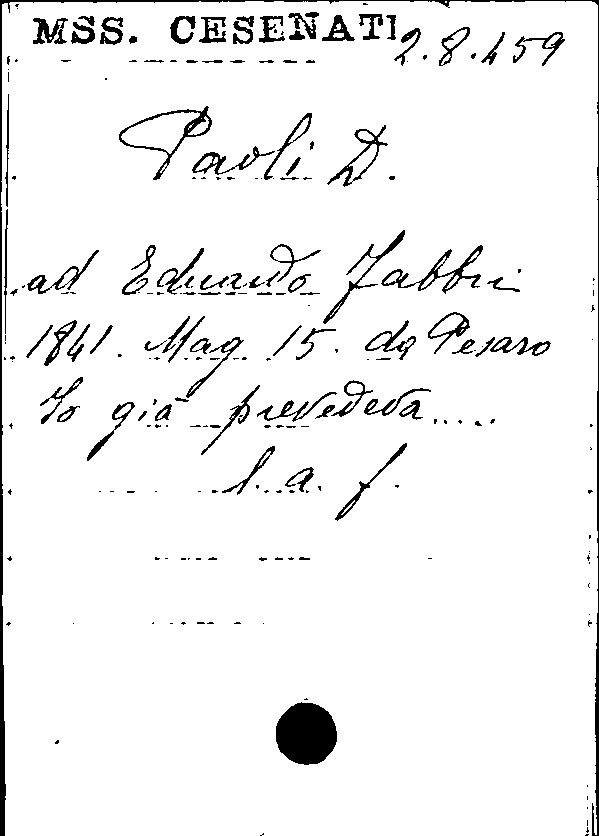 MSS. CESENATI 2.8.459
Paoli D.
ad Eduardo Fabbri
1841. Mag. 15. da Pesaro
Io già prevedeva.....
l. a. f.